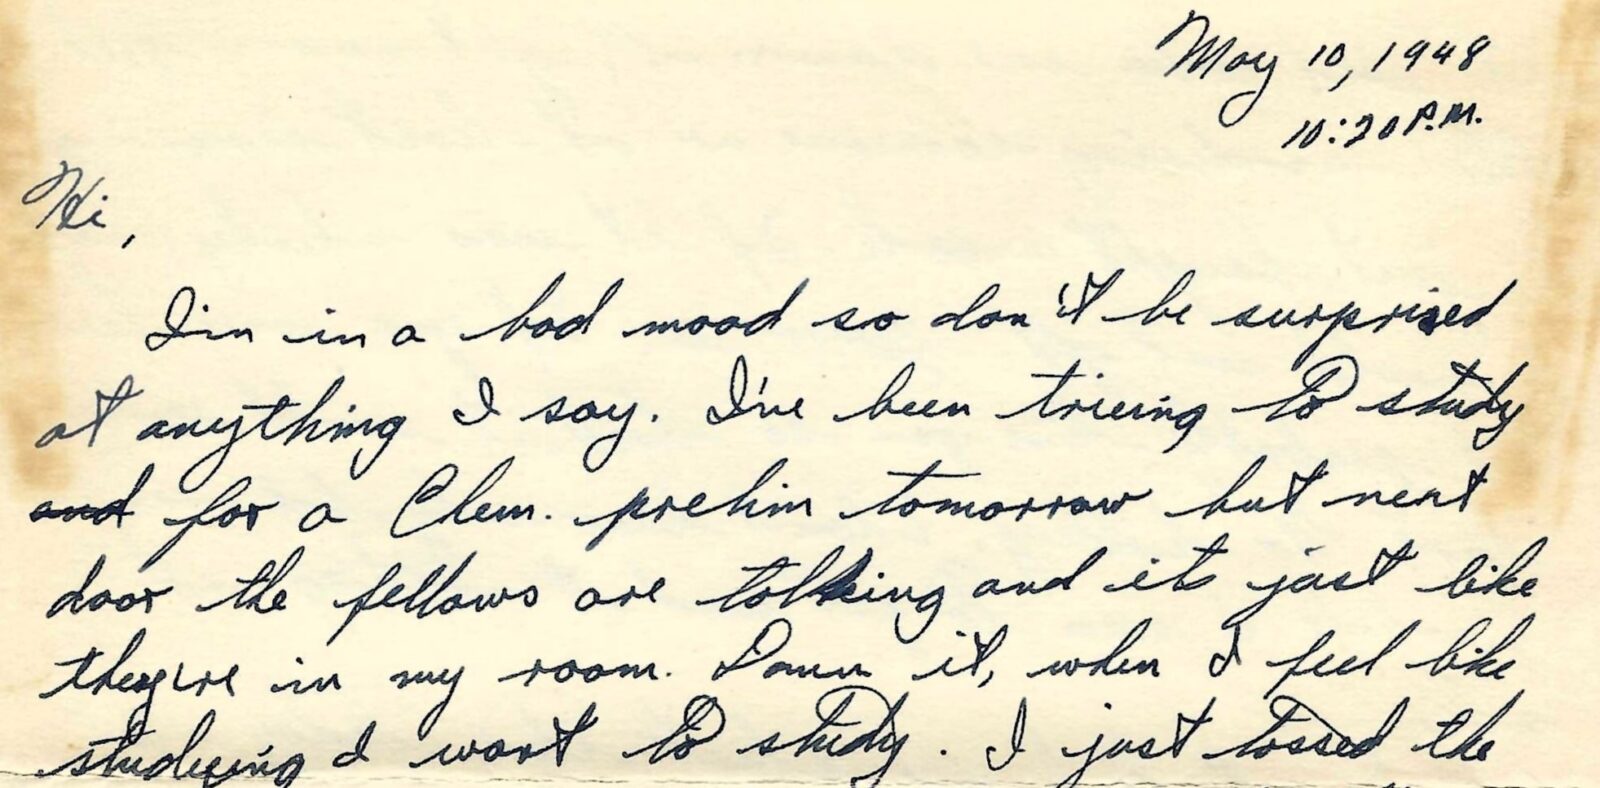 May 10, 1948
10:20 P.M.
Hi,
I'm in a bad mood so don't be surprised
at anything I say. I've been trieing to study
and for a Chem. prelim tomorrow but next
door the fellows are talking and its just like
they're in my room. Damn it, when I feel like
studying I want to study. I just tossed the